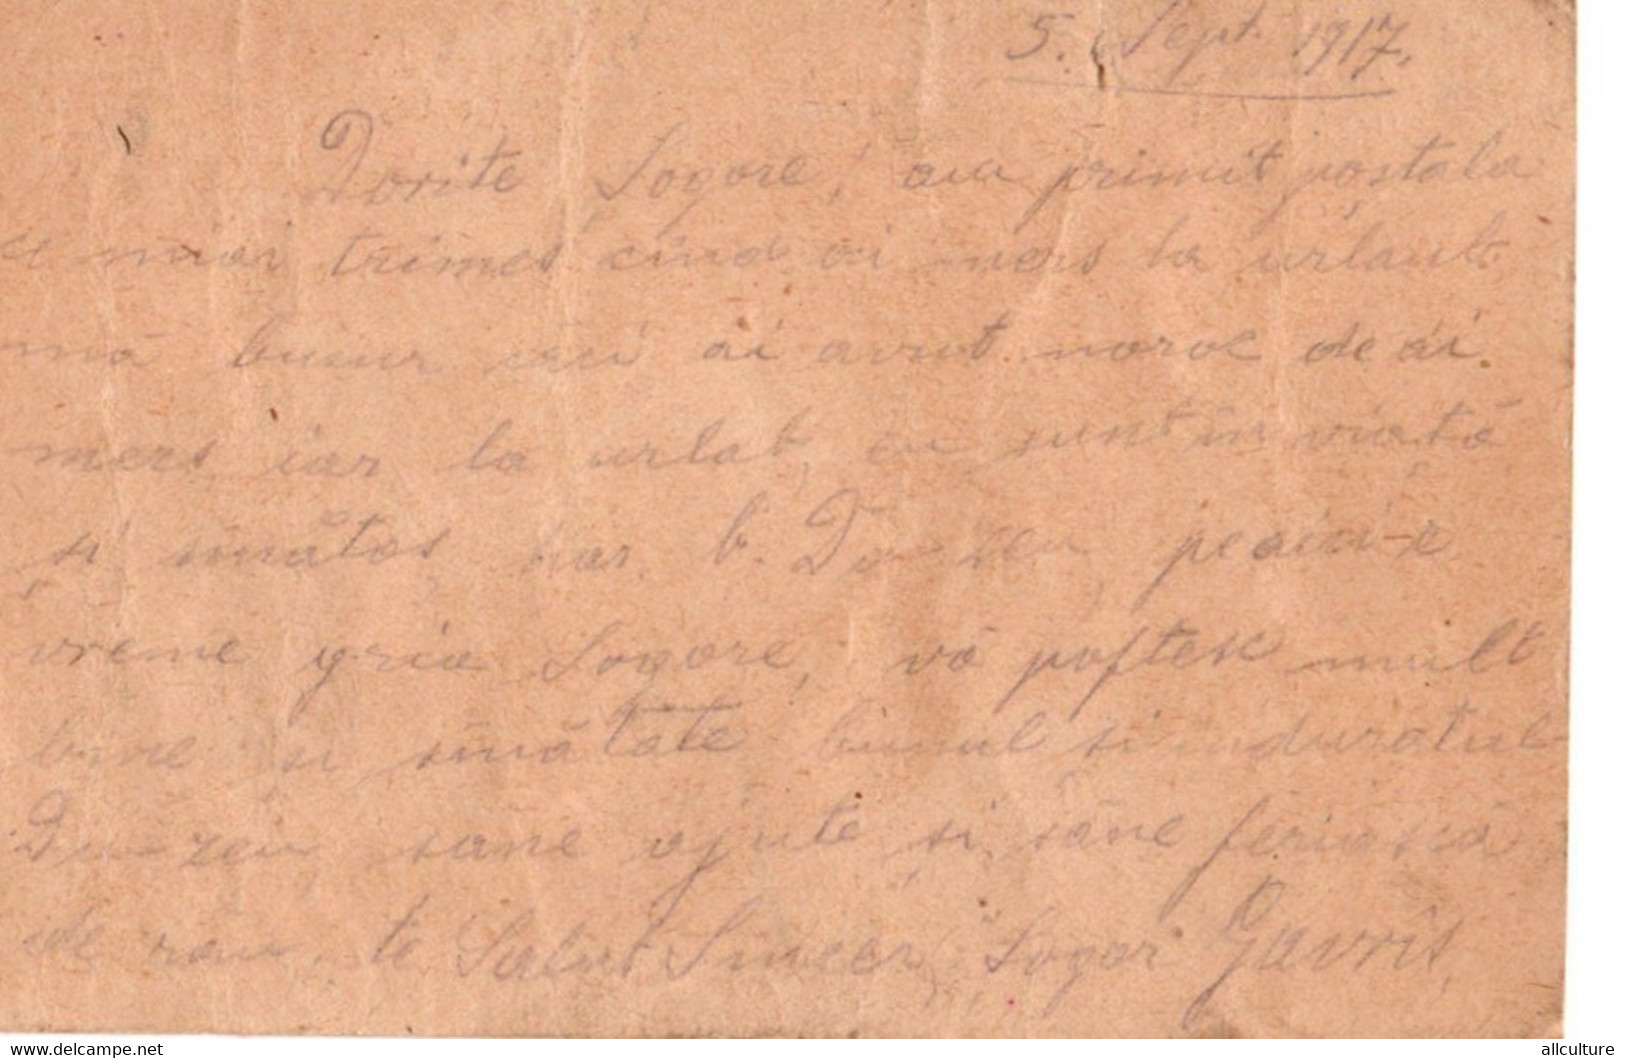 5. Sept. 1917.
Dorite Sogore, am primit poștala
ce miai trimes cînd ai mers la urlaub.
mă bucur căci ai avut noroc de ai
mers iar la urlab, eu sunt in viață
și sinătos har b. Du zeu peaica-
vreme gria Sogore, vă poftesc mult
bine si sinătate bunul si induratul
Du-zeu sane ajute și sane feriască
de rău. te Salut Sincer, Sogor Gavriș,
delcampe.net
allculture